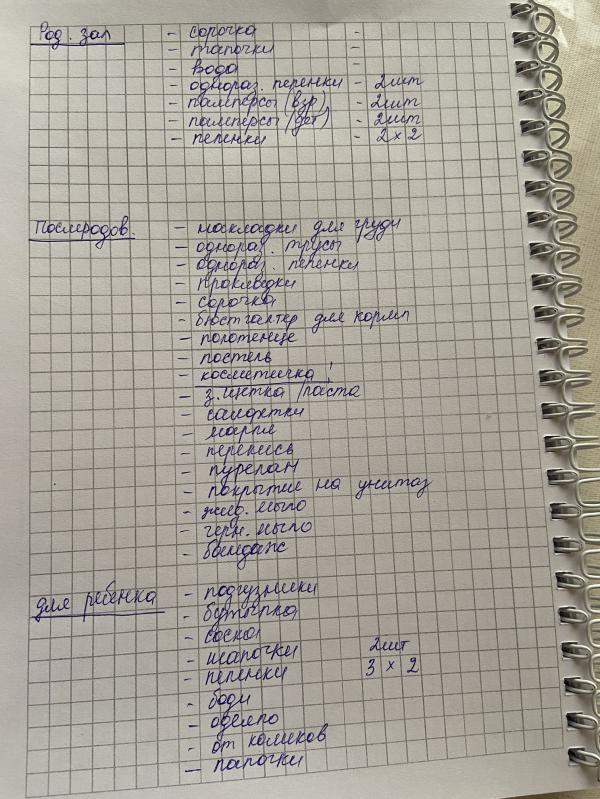 Род. зал - сорочка -
- тапочки -
- вода -
- однораз. пеленки - 2шт
- памперсы (взр) - 2шт
- памперсы (дет) - 2шт
- пеленки - 2 x 2
Послеродов. - накладки для груди
- однораз. трусы
- однораз. пеленки
- прокладки
- сорочка
- бюстгалтер для кормл
- полотенце
- постель
- косметичка!
- з. щетка /паста
- салфетки
- марля
- перекись
- пурелан
- покрытие на унитаз
- жид. мыло
- черн. мыло
- бандаж
для ребенка - подгузники
- бутылка
- соска
- шапочки 2шт
- пеленки 3 x 2
- боди
- одеяло
- от коликов
- палочки